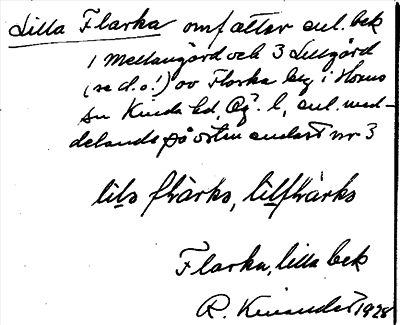 Lilla Flarka omfattar enl. bek
1 Mellangård och 3 Lillgård
(se d.o.!) av Flarka by i Horns
sn Kinda hd, Ög. l, enl. med-
delande på orten endast nr 3
lils flärks, lillflärks
Flarka, lilla bek
R. Kinander 1928